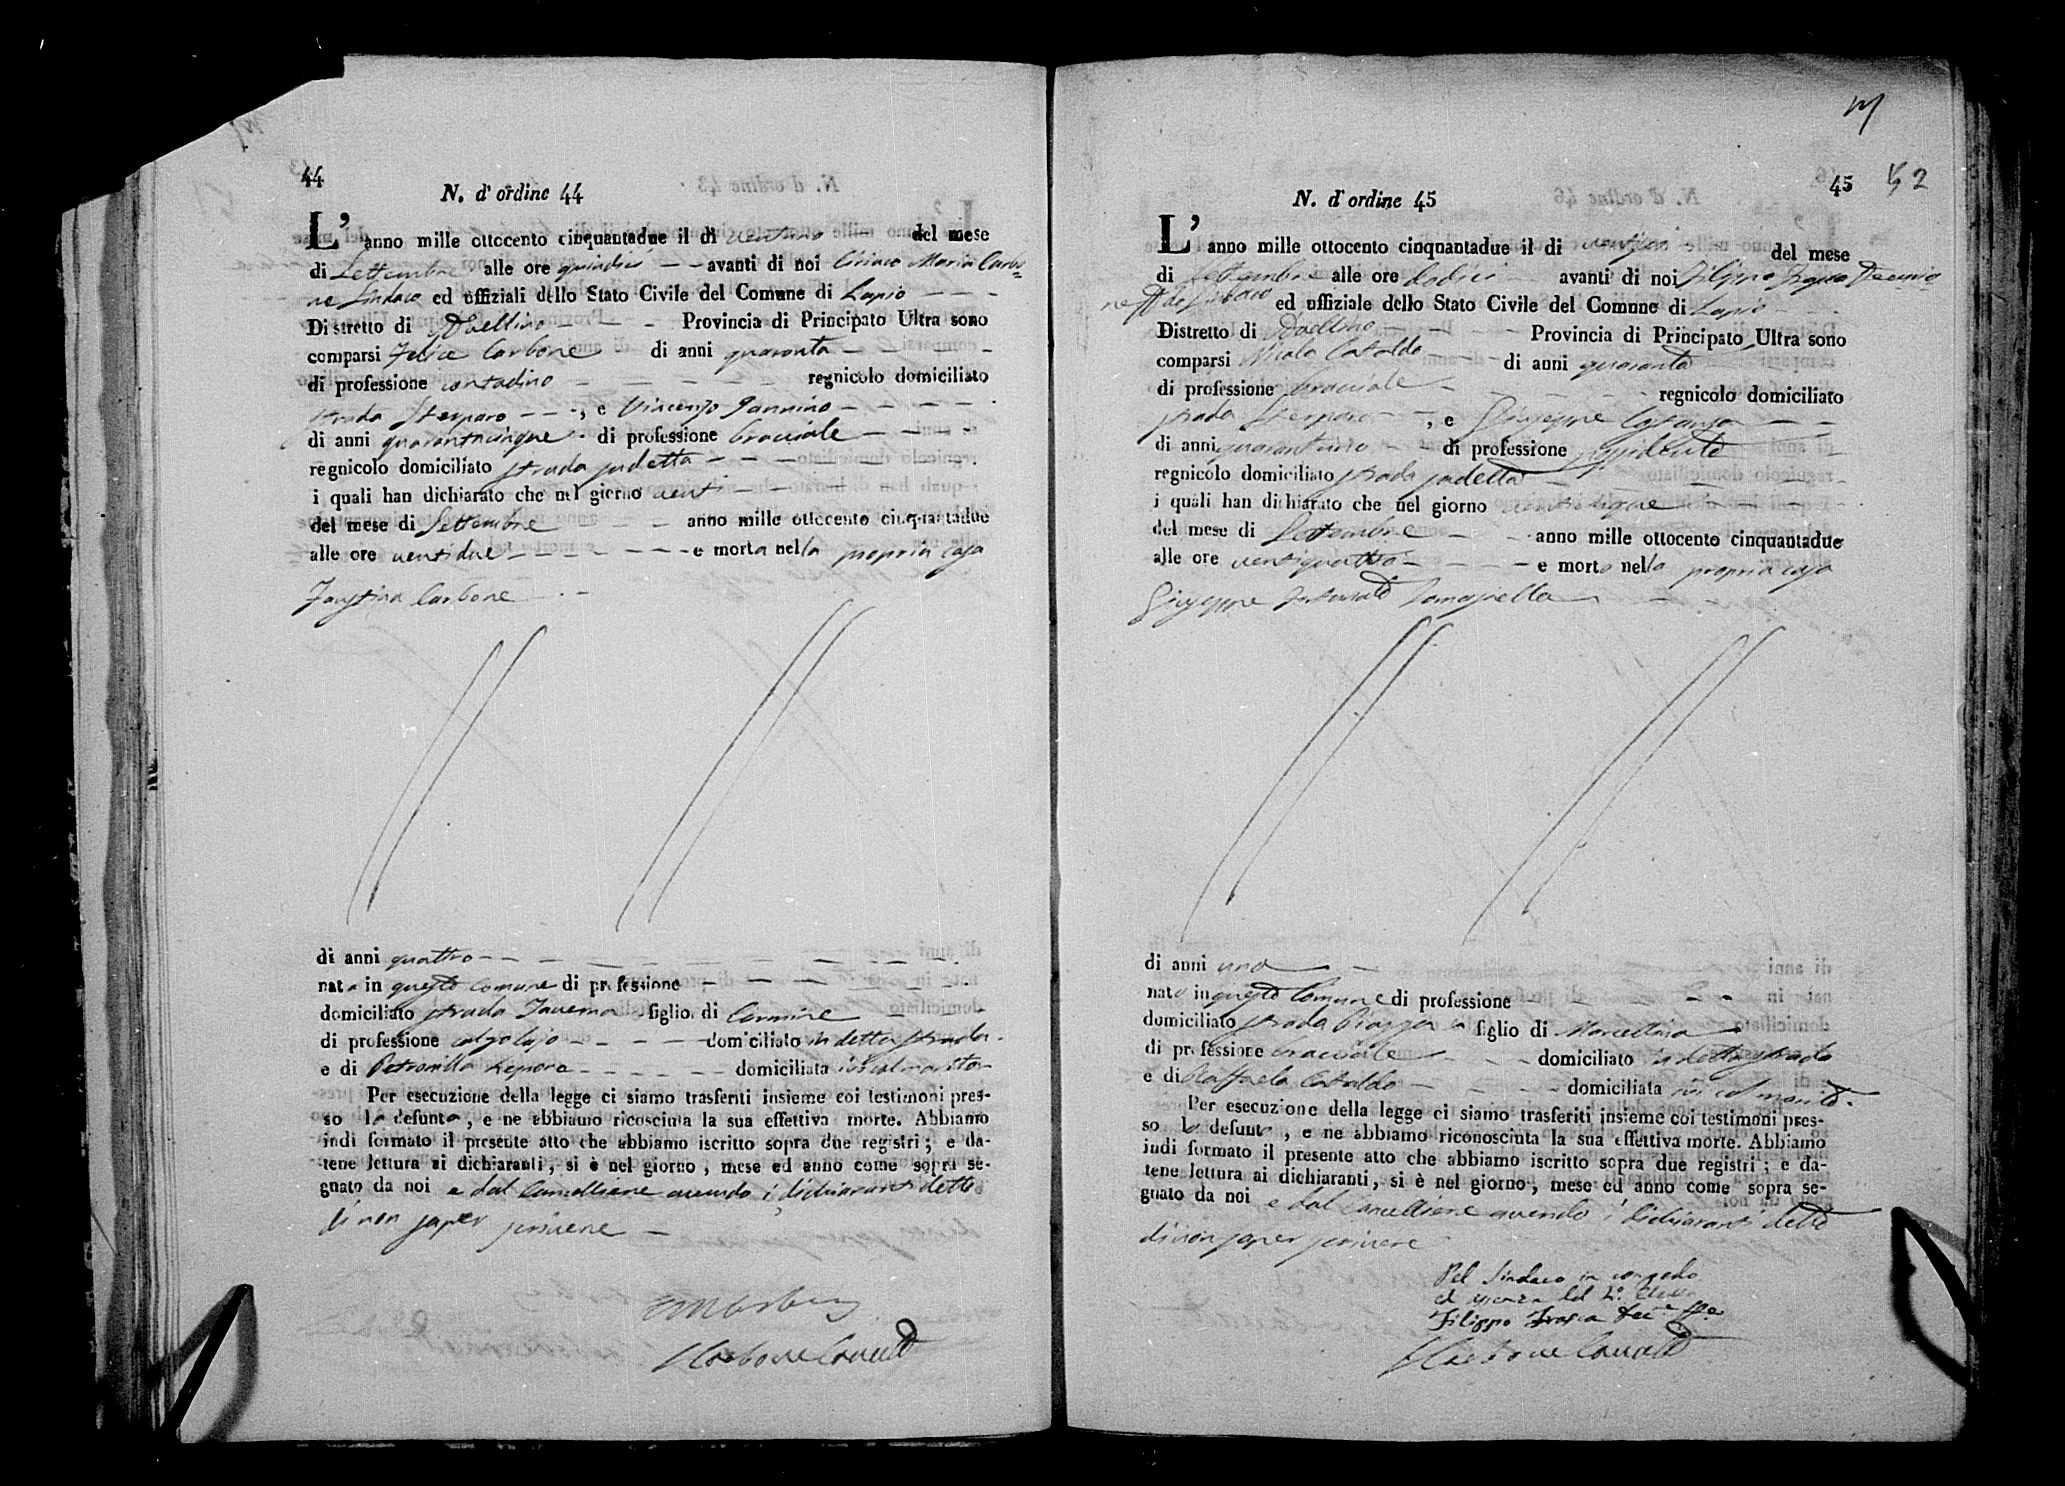 44
N. d'ordine 44
L'anno mille ottocento cinquantadue il dì ventuno del mese
di Settembre alle ore quindici avanti di noi Ciriaco Maria Carbo=
ne Sindaco ed uffiziali dello Stato Civile del Comune di Lapio
Distretto di Avellino Provincia di Principato Ultra sono
comparsi Felice Carbone di anni quaranta
di professione contadino regnicolo domiciliato
strada Sterparo, e Vincenzo Jannino
di anni quarantacinque di professione bracciale
regnicolo domiciliato strada sudetta
i quali han dichiarato che nel giorno venti
del mese di Settembre anno mille ottocento cinquantadue
alle ore ventidue e morta nella propria casa
Faustina Carbone
di anni quattro
nata in questo comune di professione
domiciliato strada Taverna figlio di Carmine
di professione calzolajo domiciliato in detta strada
e di Petronilla Lepore domiciliata ivi col marito
Per esecuzione della legge ci siamo trasferiti insieme coi testimoni pres-
so la defunta, e ne abbiamo ricosciuta la sua effettiva morte. Abbiamo
indi formato il presente atto che abbiamo iscritto sopra due registri; e da-
tene lettura ai dichiaranti, si è nel giorno, mese ed anno come sopra se-
gnato da noi e dal Cancelliere avendo i dichiaranti detto
di non saper scrivere
45 52
N. d'ordine 45
L'anno mille ottocento cinquantadue il di ventisei del mese
di Settembre alle ore dodici avanti di noi Filippo Decurio
ne ff. da Sindaco ed uffiziale dello Stato Civile del Comune di Lapio
Distretto di Avellino Provincia di Principato Ultra sono
comparsi Nicola Cataldo di anni quaranta
di professione bracciale regnicolo domiciliato
strada Sterparo, e Giuseppe
di anni quarantuno di professione possidente
regnicolo domiciliato strada sudetta
i quali han dichiarato che nel giorno venticinque
del mese di Settembre anno mille ottocento cinquantadue
alle ore ventiquattro e morto nella propria casa
Giuseppe Fortunato Romasiello
di anni uno
nato in questo Comune di professione
domiciliato strada Piazza figlio di
di professione bracciale domiciliato in detta strada
e di Raffaela Cataldo domiciliata ivi col marito.
Per esecuzione della legge ci siamo trasferiti insieme coi testimoni pres-
so lo defunto, e ne abbiamo riconosciuta la sua effettiva morte. Abbiamo
indi formato il presente atto che abbiamo iscritto sopra due registri; e da-
tene lettura ai dichiaranti, si è nel giorno, mese ed anno come sopra se-
gnato da noi e dal Cancelliere avendo i dichiaranti detto
di non saper scrivere
Pel Sindaco in congedo
ed assenza del 2º Eletto
Filippo